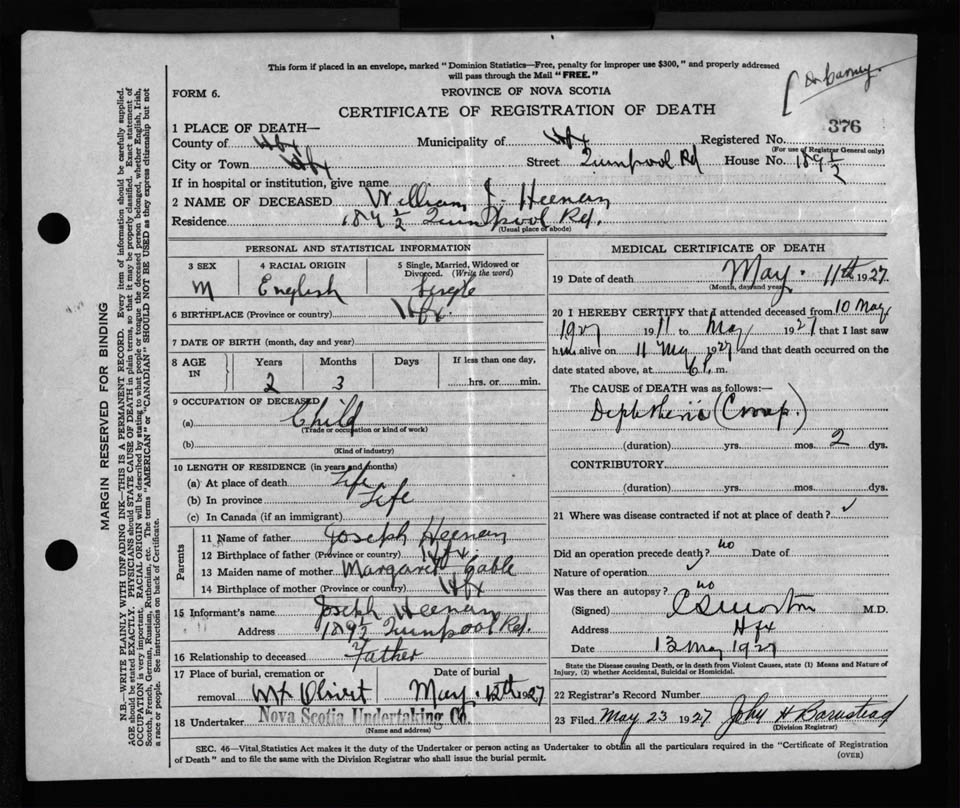 This form if placed in an envelope, marked "Dominion Statistics—Free, penalty for improper use $300," and properly addressed
will pass through the Mail "FREE."
FORM 6.
PROVINCE OF NOVA SCOTIA
CERTIFICATE OF REGISTRATION OF DEATH
376
1 PLACE OF DEATH—
County of Hfx Municipality of Hfx Registered No.
(For use of Registrar General only)
City or Town Hfx Street Quinpool Rd House No. 189½
If in hospital or institution, give name
2 NAME OF DECEASED William J. Heenan
Residence 189½ Quinpool Rd.
(Usual place of abode)
PERSONAL AND STATISTICAL INFORMATION
3 SEX 4 RACIAL ORIGIN 5 Single, Married, Widowed or
Divorced. (Write the word)
M English Single
6 BIRTHPLACE (Province or country) Hfx.
7 DATE OF BIRTH (month, day and year)
8 AGE IN Years Months Days If less than one day,
2 3 hrs. or min.
9 OCCUPATION OF DECEASED
(a) Child
(Trade or occupation or kind of work)
(b)
(Kind of industry)
10 LENGTH OF RESIDENCE (in years and months)
(a) At place of death Life
(b) In province Life
(c) In Canada (if an immigrant)
Parents
11 Name of father Joseph Heenan
12 Birthplace of father (Province or country) Hfx.
13 Maiden name of mother Margaret Gable
14 Birthplace of mother (Province or country) Hfx
15 Informant's name Joseph Heenan
Address 189½ Quinpool Rd.
16 Relationship to deceased Father
17 Place of burial, cremation or Date of burial
removal Mt Olivet May 12th 1927
18 Undertaker Nova Scotia Undertaking Co.
(Name and address)
MEDICAL CERTIFICATE OF DEATH
19 Date of death May. 11th 1927
(Month, day and year)
20 I HEREBY CERTIFY that I attended deceased from 10 May
1927 19 11 to May 1927 that I last saw
him alive on 11 May 1927 and that death occurred on the
date stated above, at 6 P. m.
The CAUSE of DEATH was as follows:—
Diphtheria (Croup.)
(duration) yrs. mos. 2 dys.
CONTRIBUTORY
(duration) yrs. mos. dys.
21 Where was disease contracted if not at place of death?
Did an operation precede death? no Date of
Nature of operation
Was there an autopsy? no
(Signed) C S Morton M.D.
Address Hfx
Date 13 May 1927
State the Disease causing Death, or in death from Violent Causes, state (1) Means and Nature of
Injury, (2) whether Accidental, Suicidal or Homicidal.
22 Registrar's Record Number
23 Filed May 23 1927 John H Barnstead
(Division Registrar)
SEC. 46—Vital Statistics Act makes it the duty of the Undertaker or person acting as Undertaker to obtain all the particulars required in the "Certificate of Registration
of Death" and to file the same with the Division Registrar who shall issue the burial permit.
(OVER)
MARGIN RESERVED FOR BINDING
N.B.—WRITE PLAINLY WITH UNFADING INK—THIS IS A PERMANENT RECORD. Every item of information should be carefully supplied.
AGE should be stated EXACTLY. PHYSICIANS should STATE CAUSE OF DEATH in plain terms, so that it may be properly classified. Exact statement of
OCCUPATION is very important. RACIAL ORIGIN will be described by stating to what people or tongue the deceased person belonged, whether English, Irish,
Scotch, French, German, Russian, Ruthenian, etc. The terms "AMERICAN" or "CANADIAN" SHOULD NOT BE USED as they express citizenship but not
a race or people. See instructions on back of Certificate.